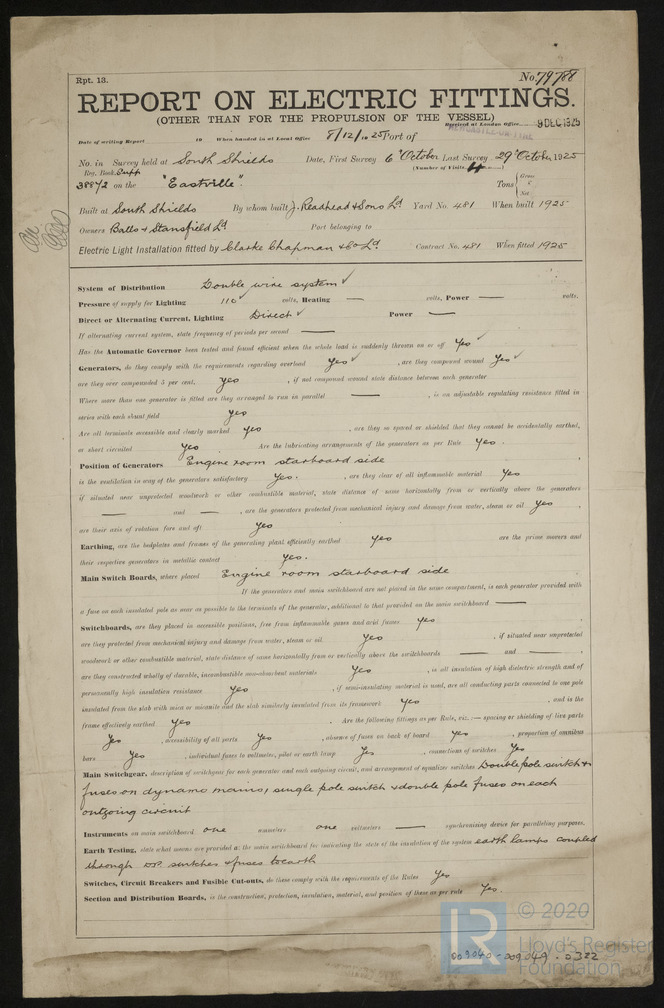 Rpt. 13.
No. 79788
REPORT ON ELECTRIC FITTINGS.
(OTHER THAN FOR THE PROPULSION OF THE VESSEL)
Received at London Office 9 DEC 1925
Date of writing Report 19 When handed in at Local Office 8/12/1925 Port of NEWCASTLE-ON-TYNE
No. in Survey held at South Shields Date, First Survey 6th October Last Survey 29th October 1925
Reg. Book. Supp (Number of Visits 4)
38872 on the "Eastville". Tons { Gross
Net
Built at South Shields By whom built J. Readhead & Sons Ld Yard No. 481 When built 1925
Owners Batts & Stansfield Ld Port belonging to
Electric Light Installation fitted by Clarke Chapman & Co Ld Contract No. 481 When fitted 1925
System of Distribution Double wire system
Pressure of supply for Lighting 110 volts, Heating — volts, Power — volts.
Direct or Alternating Current, Lighting Direct Power —
If alternating current system, state frequency of periods per second —
Has the Automatic Governor been tested and found efficient when the whole load is suddenly thrown on or off Yes
Generators, do they comply with the requirements regarding overload Yes, are they compound wound Yes
are they over compounded 5 per cent. yes, if not compound wound state distance between each generator
Where more than one generator is fitted are they arranged to run in parallel —, is an adjustable regulating resistance fitted in
series with each shunt field yes
Are all terminals accessible and clearly marked yes, are they so spaced or shielded that they cannot be accidentally earthed,
or short circuited Yes. Are the lubricating arrangements of the generators as per Rule Yes.
Position of Generators Engine room starboard side
is the ventilation in way of the generators satisfactory Yes. , are they clear of all inflammable material Yes
if situated near unprotected woodwork or other combustible material, state distance of same horizontally from or vertically above the generators
— and —, are the generators protected from mechanical injury and damage from water, steam or oil Yes,
are their axis of rotation fore and aft Yes
Earthing, are the bedplates and frames of the generating plant efficiently earthed yes are the prime movers and
their respective generators in metallic contact yes.
Main Switch Boards, where placed Engine room starboard side
If the generators and main switchboard are not placed in the same compartment, is each generator provided with
a fuse on each insulated pole as near as possible to the terminals of the generator, additional to that provided on the main switchboard —
Switchboards, are they placed in accessible positions, free from inflammable gases and acid fumes yes,
are they protected from mechanical injury and damage from water, steam or oil Yes, if situated near unprotected
woodwork or other combustible material, state distance of same horizontally from or vertically above the switchboards — and —,
are they constructed wholly of durable, incombustible non-absorbent materials Yes, is all insulation of high dielectric strength and of
permanently high insulation resistance Yes, if semi-insulating material is used, are all conducting parts connected to one pole
insulated from the slab with mica or micanite and the slab similarly insulated from its framework Yes, and is the
frame effectively earthed Yes. Are the following fittings as per Rule, viz. — spacing or shielding of live parts
Yes, accessibility of all parts Yes, absence of fuses on back of board Yes, proportion of omnibus
bars Yes, individual fuses to voltmeter, pilot or earth lamp Yes, connections of switches Yes
Main Switchgear, description of switchgear for each generator and each outgoing circuit, and arrangement of equalizer switches Double pole switch &
fuses on dynamo mains, single pole switch & double pole fuses on each
outgoing circuit
Instruments on main switchboard one ammeters one voltmeters — synchronizing device for paralleling purposes.
Earth Testing, state what means are provided at the main switchboard for indicating the state of the insulation of the system earth lamps coupled
through D.P. switches & fuses to earth
Switches, Circuit Breakers and Fusible Cut-outs, do these comply with the requirements of the Rules Yes
Section and Distribution Boards, is the construction, protection, insulation, material, and position of these as per rule Yes.
© 2020
LR
Lloyd's Register
Foundation
009040 - 009049 - 0322